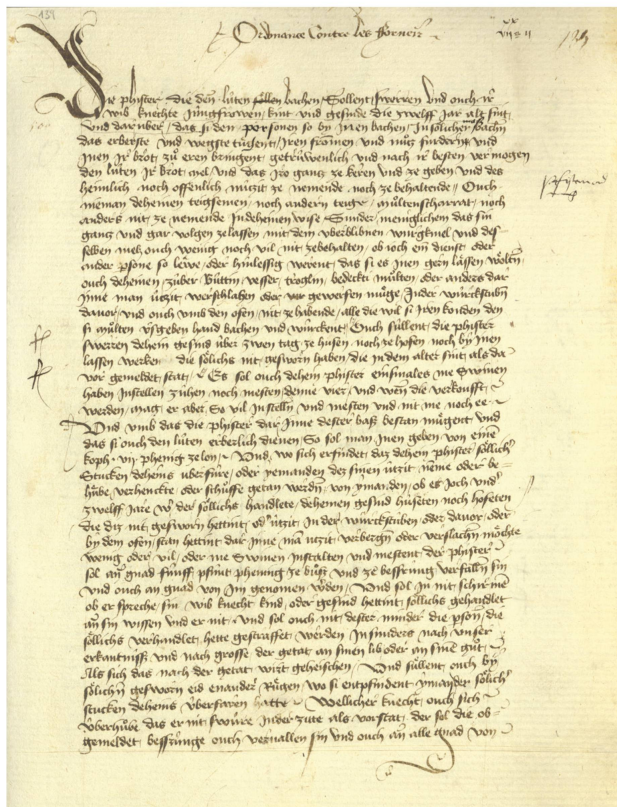 139
Ordnance Contre les forneir
139
Die phister die den lúten bachen, Sollent sweren und ouch ir
wib, knechte, jungfrowen, kint und gesinde die zwelff jar alt sint,
und darúber, das si den personen so by inen bachen, In sölichen bachen
das erberste und wegste tügent, iren fromen und nutz fürdern, und
inen ir brot zu eren bringent, getrúwenlich und nach ir besten vermogen
den lúten ir brot, mel, und das iro gantz ze keren und ze geben und des
heimlich noch offenlich nützit ze nemende noch ze behaltende, Ouch
nieman deheinen teigsemen, noch andern teige, multenscharrat, noch
anders nit, ze nemende in deheinen wise, Sunder, menglichem das sin
gantz und gar volgen ze lassen, mit dem úberblibnen wurgkmel und des
selben mels ouch wenig noch vil nit zebehalten, ob ioch ein dienst oder
ander psone so lewe, oder hinlessig werent, das si es inen gern lassen wöltin
ouch deheinen, zúber, Búttin, vesser, tröglin, bedeckt multen, oder anders dar
inne man útzit verschlahen oder verwerfen muge, In der wurckstubn
davor, und ouch umb den ofen, nit ze habende, alle die wil si iren konden den
si multen ufgeben hand bachen und wurckent, Ouch súllent, die phister
swerren dehein gesind úber zwen tag, ze husen, noch ze hofen, noch by inen
lassen werken die sölichs nit gesworn haben, die in dem alter sint als da
vor gemeldet stat, Es sol ouch dehein phister einsmales me Swinen
haben instellen, zúhen, noch mesten, denne vier, und wenn die verkoufft
werden, mag er aber, so vil instelln und mesten und nit me noch ee
Und umb das die phister dar inne dester baß bestan mugent und
das si ouch den lúten erberlich dienen, So sol man inen geben von einem
koph vij phenig ze lon, Und, wo sich erfindet daz dehein phister söllich
Stucken deheins uberfure, oder yemanden dez sinen útzit, neme oder be-
hube, verhenckte, oder schuffe getan werden, von ymanden, ob es joch und
zwelff jare wer der söllichs handlete, deheinen gesind húseten noch hofeten
die diz nit gesworn hettint, oder útzit in der wurckstuben, oder davor, oder
by dem ofen, stan hettint dar inne man útzit verbergen oder verslachen möchte
wenig oder vil, oder me Swinen instalten und mestent, der phister
sol an gnad funff pfunt phennig ze buß und ze bessrung verfallen sin
und ouch an gnad von im genomen werden, Und sol in nit schirmen
ob er spreche, sin wib knecht kind, oder gesind hettint söllichs gehandlet
an sin wissen und er nit, Und sol ouch nit dester minder die pson, die
söllichs verhandlet hette gestraffet werden insunders nach unser
erkantniss und nach grosse der getat an sinen lib oder an sinem gut,
Als sich das nach der getat wirt geheischen, Und súllent ouch by
sölichem gesworn eid enander rúgen, wo si entpfindent, ymander sölich
stucken deheins úberfaren hatte, Wellicher knecht, ouch sich
úberhube das er nit swúre in der zitte als vorstat, der sol die ob-
gemeldet, bessrunge ouch vervallen sin und ouch an alle gnad von